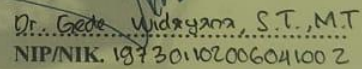 Dr. Gede Widayana, S.T., M.T
NIP/NIK. 197301102006041002